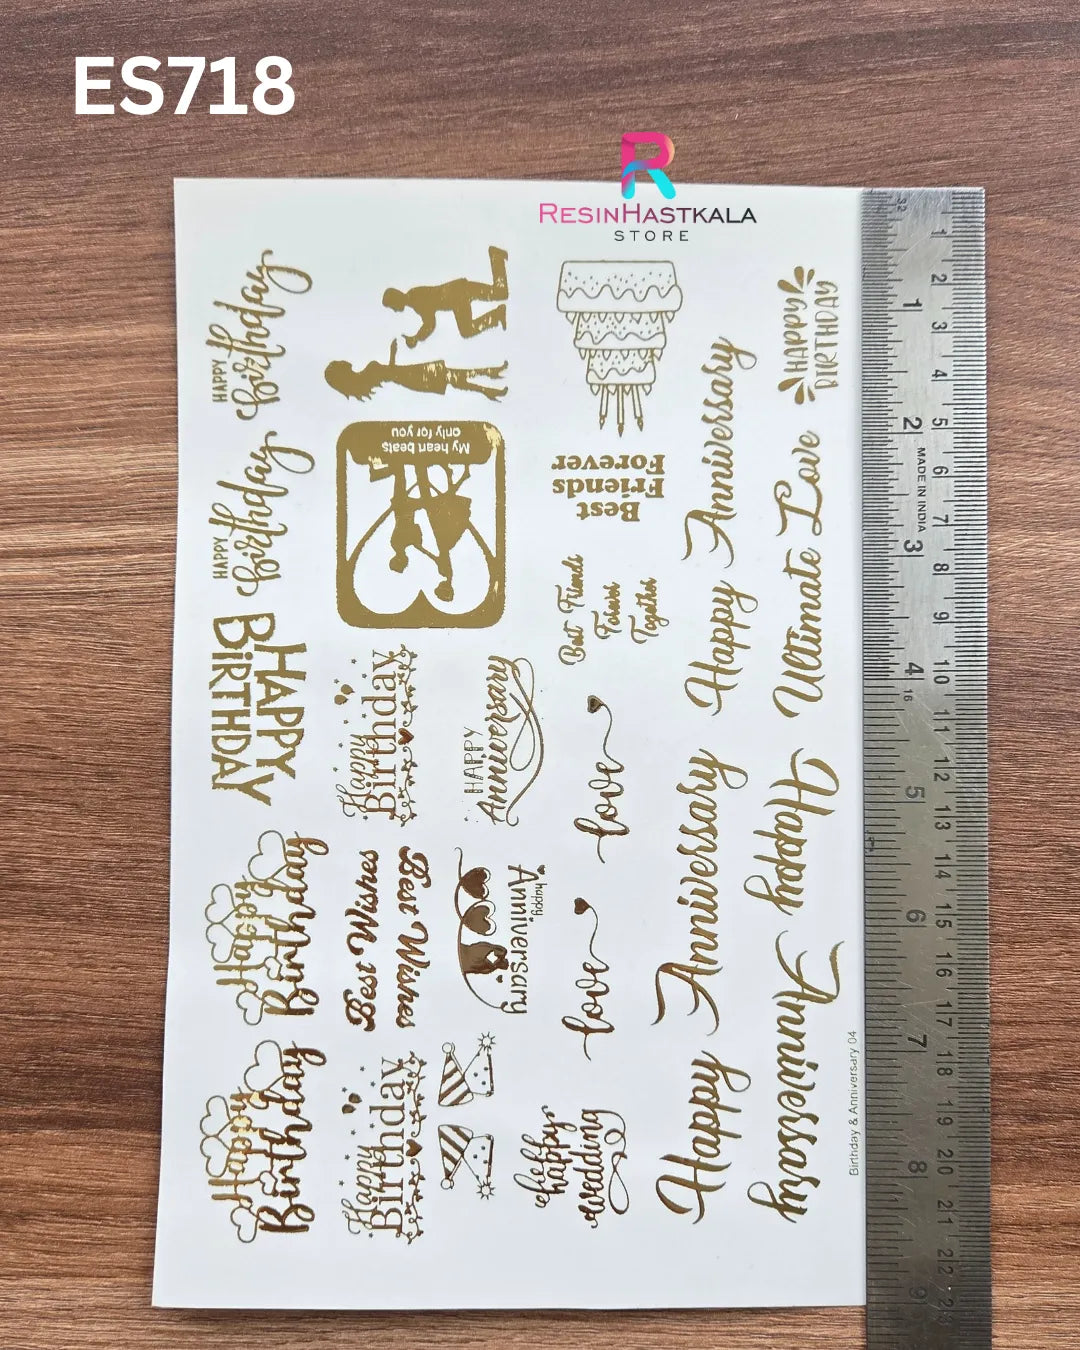 ES718
RESINHASTKALA
STORE
HAPPY
birthday
HAPPY
birthday
HAPPY
BIRTHDAY
happy
Birthday
happy
Birthday
My heart beats
only for you
Happy
Birthday
Best Wishes
Best Wishes
Happy
Birthday
HAPPY
Anniversary
happy
Anniversary
Best
Friends
Forever
Best Friends
Forever
Together
love
love
happy
wedding
Happy Anniversary
Happy Anniversary
HAPPY
BIRTHDAY
Ultimate Love
Happy
Anniversary
Birthday & Anniversary 04
MADE IN INDIA
32
1 2 3 4 5 6 7 8 9 10 11 12 13 14 15 16 17 18 19 20 21 22 23
1 2 3 4 5 6 7 8 9
16